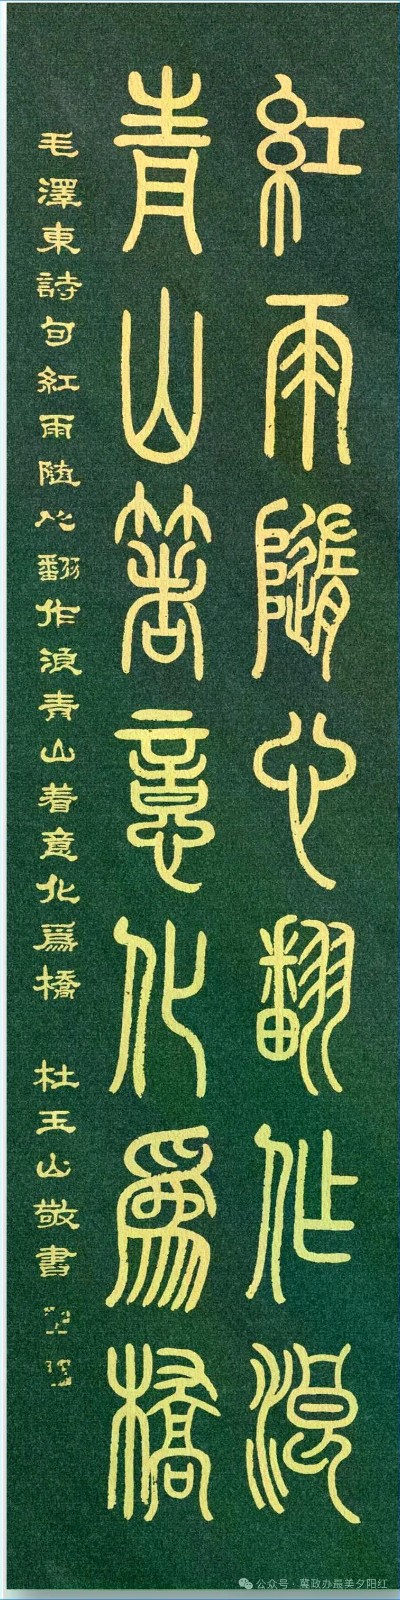 紅雨隨心翻作浪
青山著意化爲橋
毛澤東詩句紅雨隨心翻作浪青山着意化爲橋 杜玉山敬書
公众号·冀政办最美夕阳红